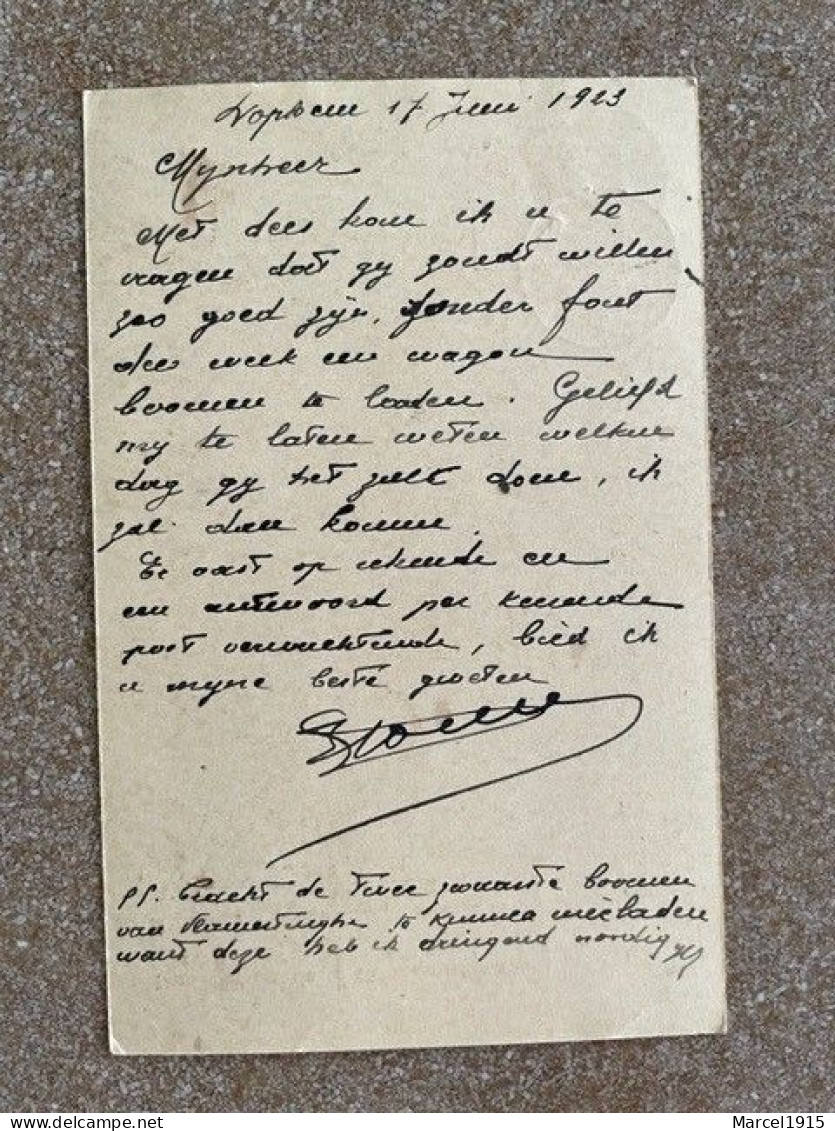 Lophem 17 Juni 1923
Mynheer
Met dees kom ik u te
vragen dat gy zoudt willen
zoo goed zyn, zonder fout
dees week een wagon
boomen te laaden. Geliefd
my te laten weten welken
dag gy het zult doen, ik
zal dan komen.
Er vast op rekende en
een antwoord per keerende
post verwachtende, bied ik
u myne beste groeten
PS. Tracht de twee zwaarste boomen
van Vlamertinghe te kunnen meeladen
want deze heb ik dringend noodig
delcampe.net
Marcel1915